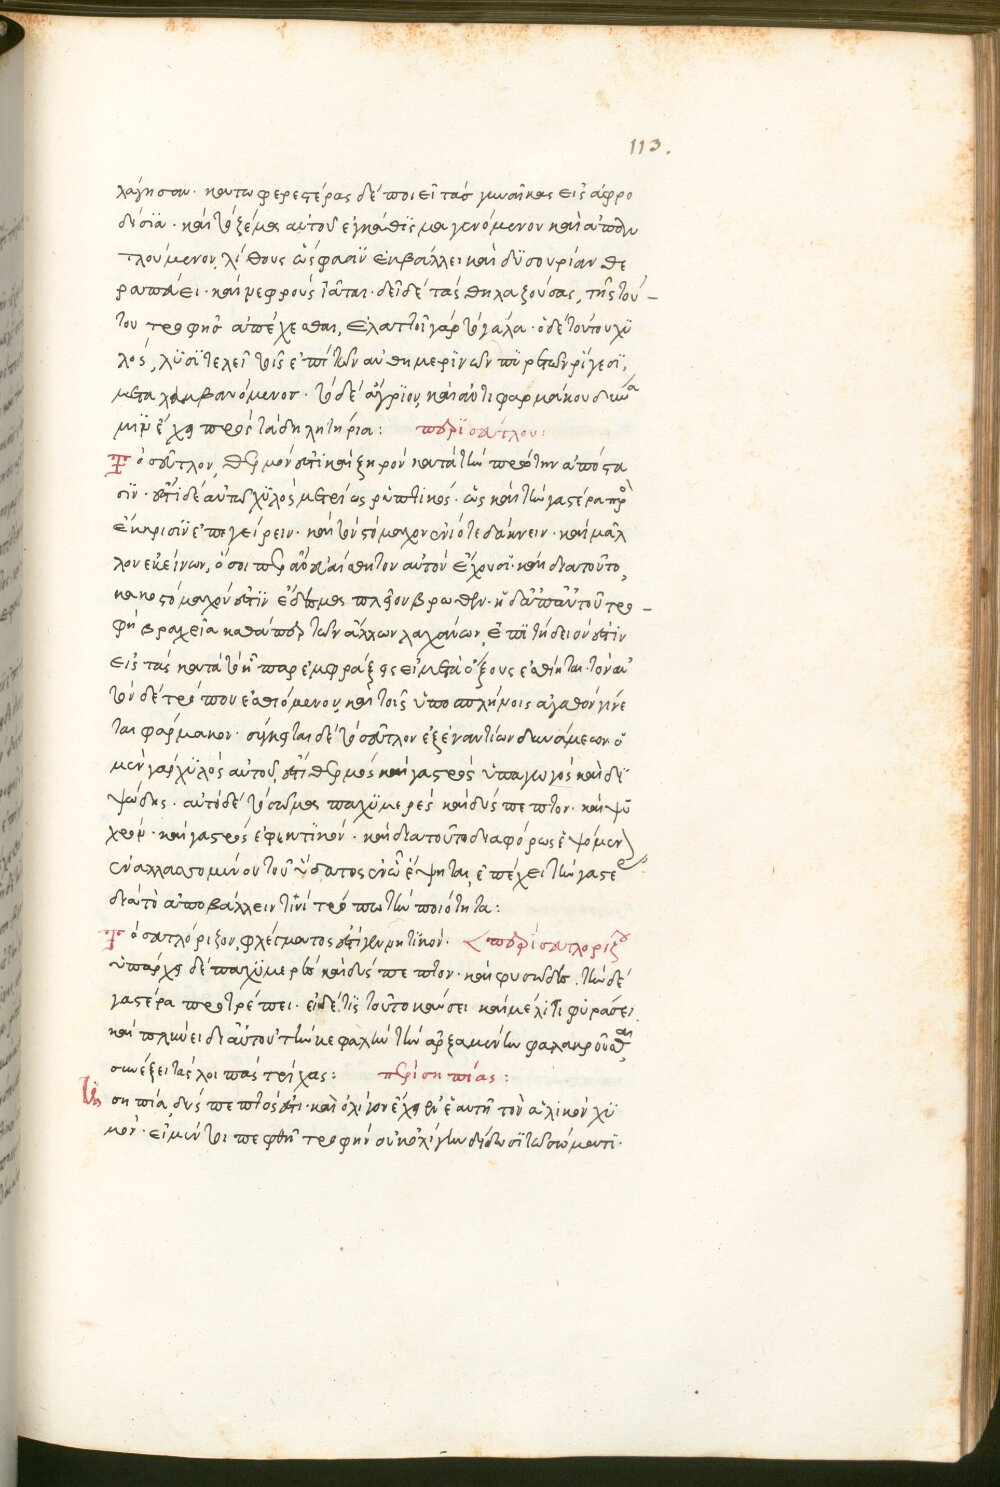 113.
λάγησαν. καταφερεστέρας δὲ ποιεῖ τὰς γυναῖκας εἰς ἀφρο
δίσϊα. καὶ τὸ ζέμα αὐτοῦ ἐγκάθϊσμα γενόμενον καὶ ἀπο
τλούμενον, λίθους ὥς φασϊν ἐκβάλλει καὶ δυσουρίαν θε
ραπεύει. καὶ νεφροὺς ἰᾶται. δεῖ δέ τὰς θηλαζούσας, τῆς τού–
του τροφῆς ἀπέχεσθαι, ἐλαττοῖ γὰρ τὸ γάλα. ὁ δὲ τούτου χϋ
λός, λϋσϊτελεῖ τοῖς ἐπὶ τῶν αὐθημερϊνῶν πϋρετῶν ρίγεσϊ,
μεταλαμβανόμενος. τὸ δὲ ἄγρϊον, καὶ ἀντιφαρμάκου δύνα
μϊν ἔχει πρὸς τὰ δηλητήρια: περὶ σεύτλου:
Το σεῦτλον, θερμόν ἐστι καὶ ξηρὸν κατὰ τὴν πρώτην ἀπόστα
σϊν. ἐστὶ δὲ αὐτοῦ χϋλὸς μετρίως ρϋπτϊκός. ὡς καὶ τὴν γαστέρα πρὸς
ἔκκρισϊν ἐπεγείρειν. καὶ τὸν στόμαχον ἐνίοτε δάκνειν. καὶ μᾶλ
λον ἐκείνων, ὅσοι περ ἂν εὐαίσθητον αὐτὸν ἔχουσϊ. καὶ διατοῦτο,
κακοστόμαχόν ἐστϊν ἔδεσμα πλεῖον βρωθέν. ἡ δ' ἀπ' αὐτοῦ τρο–
φὴ βραχεῖα καθάπερ τῶν ἄλλων λαχάνων, ἐπϊτήδειον ἐστὶν
εἰς τὰς κατὰ τὸ ἧπαρ ἐμφράξεις εἰ μετὰ ὄξους ἐσθίηται. τὸν αὐ
τὸν δὲ τρόπον ἐσθιόμενον, καὶ τοῖς ὑποσπλήνοις ἀγαθὸν γίνε
ται φάρμακον. σύγκειται δὲ τὸ σεῦτλον ἐξ ἐναντίων δυνάμεων. ὁ
μὲν γὰρ χϋλὸς αὐτοῦ, ἐστὶ θερμὸς καὶ γαστρὸς ὑπαγωγὸς καὶ δϊ
ψώδης. αὐτὸ δὲ τὸ σῶμα παχϋμερὲς καὶ δύσπεπτον. καὶ ψϋ
χρὸν. καὶ γαστρὸς ἐφεκτϊκόν. καὶ διατοῦτο διαφόρως ἑψόμενον
ἐναλλασσομένου τοῦ ὕδατος ἐν ᾧ ἕψηται, ἐπέχει τὴν γαστέρα
διὰ τὸ ἀποβάλλειν τϊνὶ τρόπω τὴν ποιότητα:
Το σευτλόριζον, φλέγματος ἐστὶ γεννητϊκόν. περὶ σευτλορίζου
ὑπάρχει δὲ παχϋμερὲς καὶ δύσπεπτον. καὶ φυσῶδες. τὴν δὲ
γαστέρα προτρέπει. εἰ δέ τϊς τοῦτο καύσει καὶ μέλϊτι φϋράσει,
καὶ πλύνει δι' αὐτοῦ τὴν κεφαλὴν τὴν ἀρξαμένην φαλακροῦσθαι,
συνέξει τὰς λοιπὰς τρίχας: περὶ σηπίας:
Ἡ σηπία, δύσπεπτός ἐστι. καὶ ὀλίγον ἔχει ἐν ἑαυτῆ τὸν ἁλϊκὸν χϋ
μόν. εἰ μέντοι πεφθῆ τροφὴν οὐκ ὀλίγην δίδωσϊ τῶ σώματϊ.